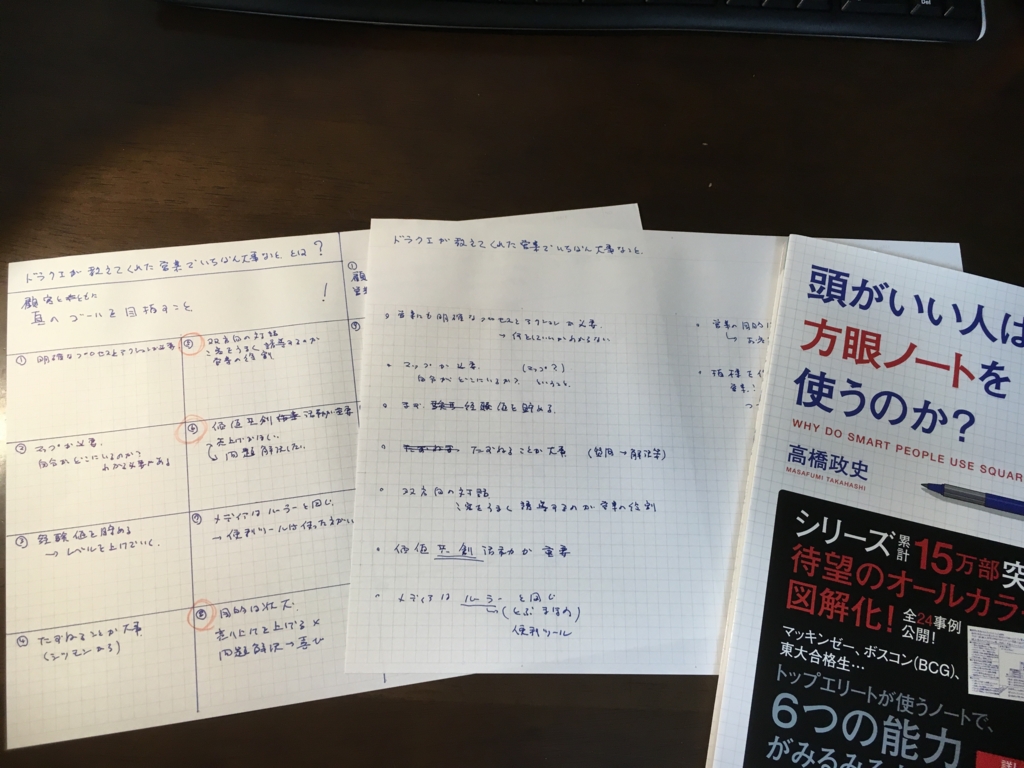 ドラクエが教えてくれた営業でいちばん大事なこと とは?
顧客とともに
真のゴールを目指すこと !
① 明確なプロセスとアクションが必要
② マップが必要
自分がどこにいるのか?
わかる必要がある
③ 経験値を貯める
→ レベルを上げていく
④ たずねることが大事
双方向の対話
これをうまく誘導するのが
営業の役割
⑥ 価値共創 活動が重要
売上げがほしい
問題解決したい
⑦ メディアはルーラと同じ
→ 便利ツールは使った方がいい
⑧ 目的は壮大
売り上げを上げる ×
問題解決→喜び
①
顧
ドラクエが教えてくれた営業でいちばん大事なこと
営業にも明確なプロセスとアクションが必要
→ 何をしていいかわからない
マップが必要 (マップ?)
自分がどこにいるか? ということ
まず 経験値を貯める
たずねることが大事 (質問→解決策)
双方向の対話
これをうまく誘導するのが営業の役割
価値共創活動が重要
メディアは ルーラ と同じ
便利ツール
営業の目的は
頭がいい人は
方眼ノートを
使うのか?
WHY DO SMART PEOPLE USE SQUAR
高橋政史
MASAFUMI TAKAHASHI
シリーズ累計15万部突
待望のオールカラー
図解化! 全24事例公開!
マッキンゼー、ボスコン(BCG)、
東大合格生…
トップエリートが使うノートで、
6つの能力
がみるみる